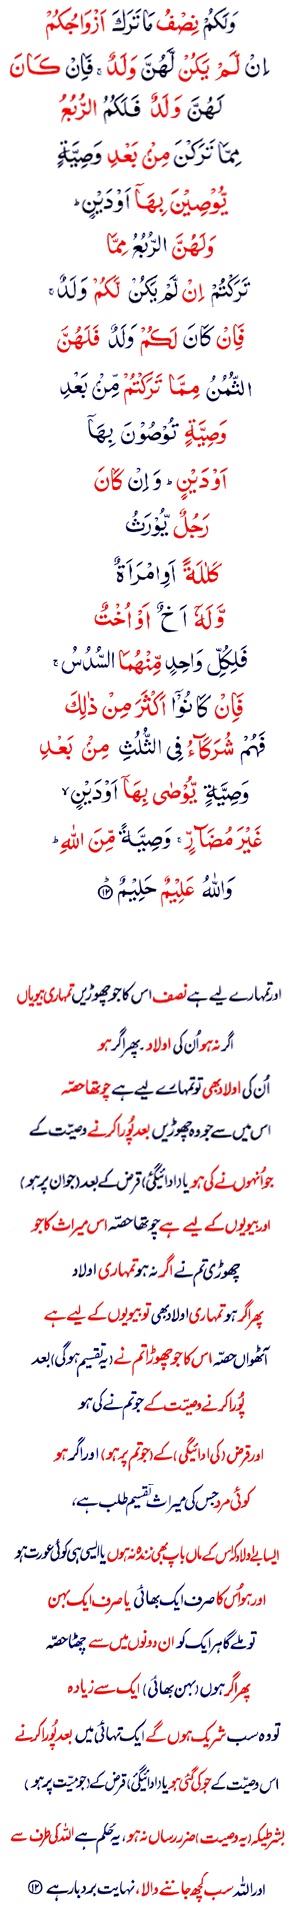 وَلَكُمْ نِصْفُ مَا تَرَكَ اَزْوَاجُكُمْ
اِنْ لَّمْ يَكُنْ لَّهُنَّ وَلَدٌ ۚ فَاِنْ كَانَ
لَهُنَّ وَلَدٌ فَلَكُمُ الرُّبُعُ
مِمَّا تَرَكْنَ مِنْۢ بَعْدِ وَصِيَّةٍ
يُّوْصِيْنَ بِهَاۤ اَوْ دَيْنٍ ؕ
وَلَهُنَّ الرُّبُعُ مِمَّا
تَرَكْتُمْ اِنْ لَّمْ يَكُنْ لَّكُمْ وَلَدٌ ۚ
فَاِنْ كَانَ لَكُمْ وَلَدٌ فَلَهُنَّ
الثُّمُنُ مِمَّا تَرَكْتُمْ مِّنْۢ بَعْدِ
وَصِيَّةٍ تُوْصُوْنَ بِهَاۤ
اَوْ دَيْنٍ ؕ وَاِنْ كَانَ
رَجُلٌ يُّوْرَثُ
كَلٰلَةً اَوِ امْرَاَةٌ
وَّلَهٗۤ اَخٌ اَوْ اُخْتٌ
فَلِكُلِّ وَاحِدٍ مِّنْهُمَا السُّدُسُ ۚ
فَاِنْ كَانُوْۤا اَكْثَرَ مِنْ ذٰلِكَ
فَهُمْ شُرَكَآءُ فِى الثُّلُثِ مِنْۢ بَعْدِ
وَصِيَّةٍ يُّوْصٰى بِهَاۤ اَوْ دَيْنٍ ۙ
غَيْرَ مُضَآرٍّ ۚ وَصِيَّةً مِّنَ اللّٰهِ ؕ
وَاللّٰهُ عَلِيْمٌ حَلِيْمٌ ؕ ۱۲
اور تمہارے لیے ہے نصف اس کا جو چھوڑیں تمہاری بیویاں
اگر نہ ہو اُن کی اولاد۔ پھر اگر ہو
اُن کی اولاد بھی تو تمہارے لیے ہے چوتھا حصّہ
اس میں سے جو وہ چھوڑیں بعد پُورا کرنے وصیّت کے
جو اُنھوں نے کی ہو یا (ادائیگی) قرض کے بعد (جو ان پر ہو)
اور بیویوں کے لیے ہے چوتھا حصّہ اس میراث کا جو
چھوڑی تم نے اگر نہ ہو تمہاری اولاد
پھر اگر ہو تمہاری اولاد بھی تو بیویوں کے لیے ہے
آٹھواں حصّہ اس کا جو چھوڑا تم نے (یہ تقسیم ہوگی) بعد
پُورا کرنے وصیّت کے جو تم نے کی ہو
اور قرض (کی ادائیگی) کے (جو تم پر ہو) اور اگر ہو
کوئی مرد جس کی میراث تقسیم طلب ہے،
ایسا بے اولاد کہ اس کے ماں باپ بھی زندہ نہ ہوں یا ایسی ہی کوئی عورت ہو
اور ہو اُس کا صرف ایک بھائی یا صرف ایک بہن
تو ملے گا ہر ایک کو ان دونوں میں سے چھٹا حصّہ
پھر اگر ہوں (بہن بھائی) ایک سے زیادہ
تو وہ سب شریک ہوں گے ایک تہائی میں بعد پُورا کرنے
اس وصیّت کے جو کی گئی ہو یا (ادائیگی) قرض کے (جو میّت پر ہو)
بشرطیکہ (یہ وصیت) ضرر رساں نہ ہو، یہ حُکم ہے اللہ کی طرف سے
اور اللہ سب کچھ جاننے والا، نہایت بردبار ہے ۱۲